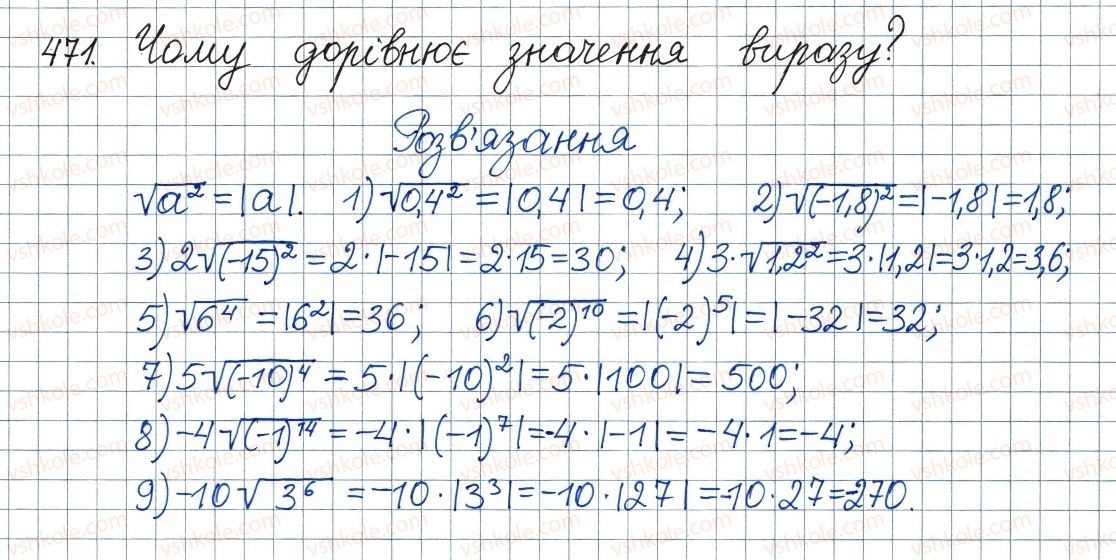 471. Чому дорівнює значення виразу?
Розв'язання
√a² = |a|. 1) √0,4² = |0,4| = 0,4; 2) √(-1,8)² = |-1,8| = 1,8;
3) 2√(-15)² = 2·|-15| = 2·15 = 30; 4) 3·√1,2² = 3·|1,2| = 3·1,2 = 3,6;
5) √6⁴ = |6²| = 36; 6) √(-2)¹⁰ = |(-2)⁵| = |-32| = 32;
7) 5√(-10)⁴ = 5·|(-10)²| = 5·|100| = 500;
8) -4√(-1)¹⁴ = -4·|(-1)⁷| = -4·|-1| = -4·1 = -4;
9) -10√3⁶ = -10·|3³| = -10·|27| = -10·27 = -270.
vshkole.com